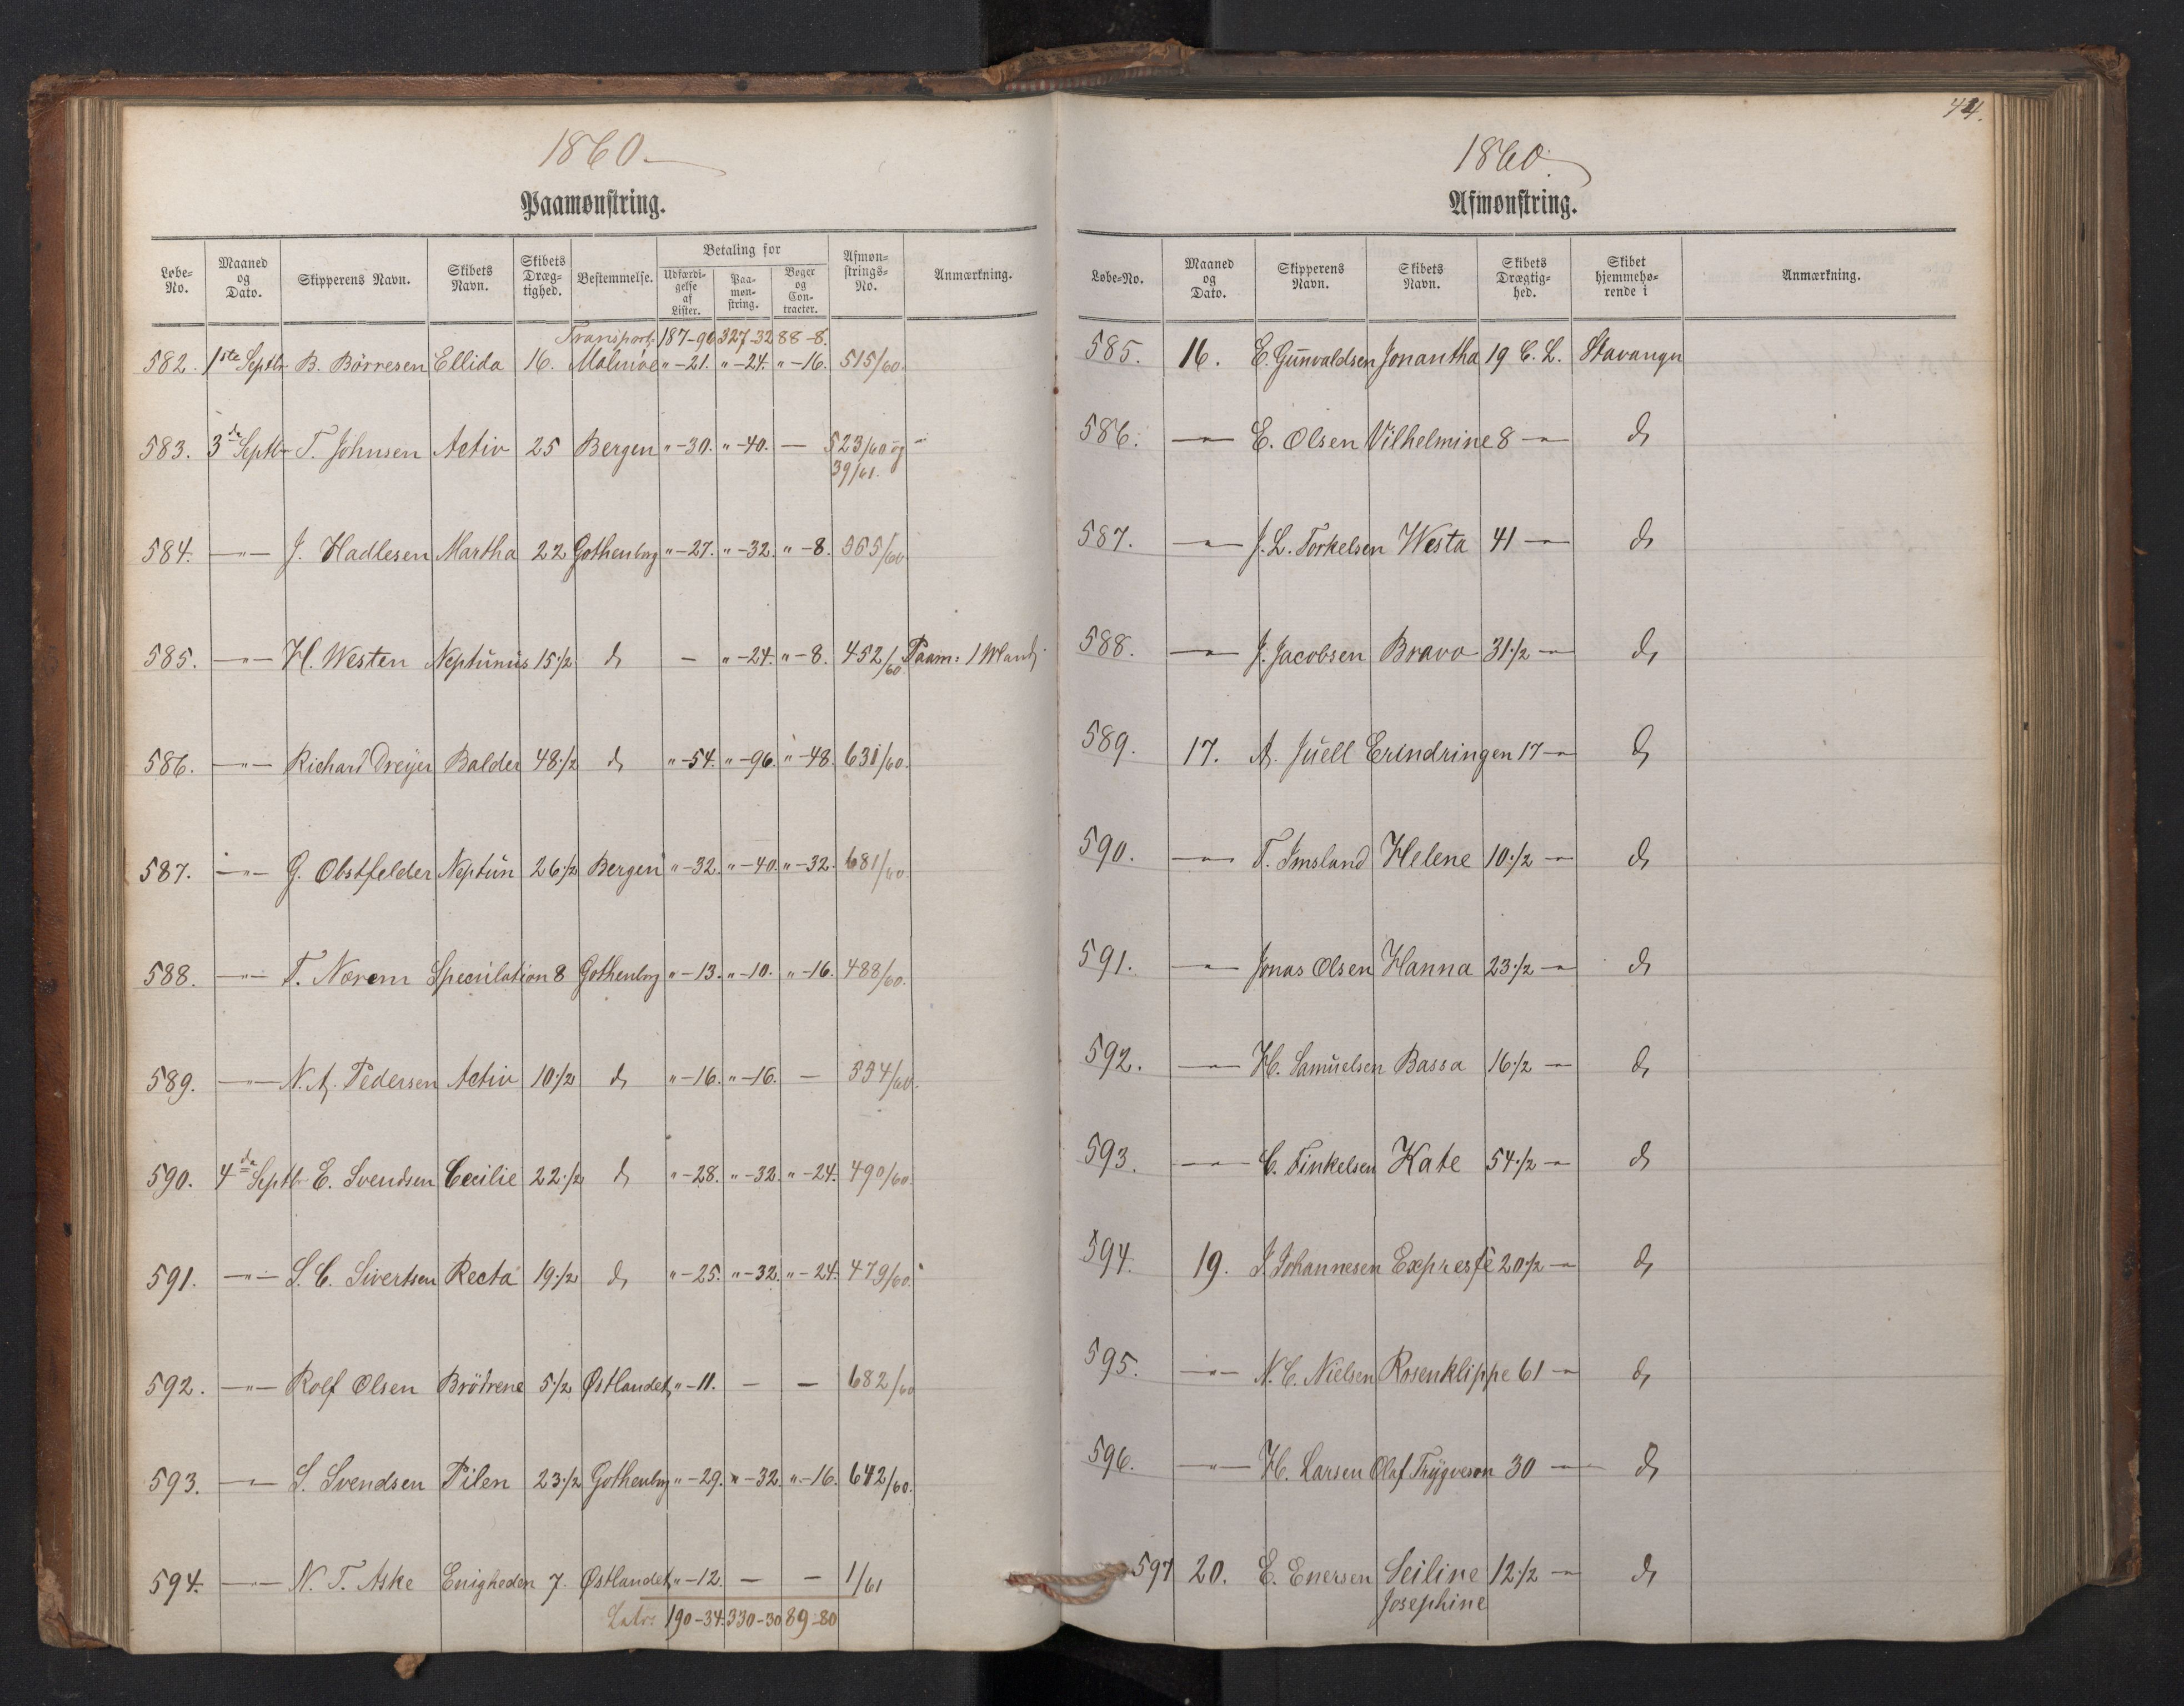 1860
Paamønstring.
Løbe-No. Maaned og Dato. Skipperens Navn. Skibets Navn. Skibets Dræg-tighed. Bestemmelse. Betaling for Udfærdi-gelse af Lister. Paa-møn-string. Bøger og Con-tracter. Afmøn-strings-No. Anmærkning.
Transport: 187-90 327-32 88-8.
582. 1ste Septbr B. Börresen Ellida 16. Malmöe "-21. "-24. "-16. 515/60.
583. 3de Septbr T. Johnsen Activ 25 Bergen "-30. "-40. — 523/60 og
39/61.
584. —"— J. Hadlesen Martha 22 Gothenborg "-27. "-32. "-8. 565/60
585. —"— H. Westen Neptunus 15½ d "-24. "-8. 452/60 Paam: 1 Mand
586. —"— Richard Dreyer Balder 48½ d "-54. "-96. "-48. 631/60.
587. —"— G. Obstfelder Neptun 26½ Bergen "-32. "-40. "-32. 681/60
588. —"— T. Nærem Speculation 8 Gothenborg "-13. "-10. "-16. 488/60.
589. —"— N. A. Pedersen Activ 10½ d "-16. "-16. — 554/60.
590. 4de Septbr E. Svendsen Cecilie 22½ d "-28. "-32. "-24. 490/60.
591. —"— S. C. Sivertsen Recta 19½ d "-25. "-32. "-24. 479/60.
592. —"— Rolf Olsen Brödrene 5½ Østlandet "-11. — — 682/60
593. —"— S. Svendsen Pilen 23½ Gothenborg "-29. "-32. "-16. 642/60.
594. —"— N. T. Aske Enigheden 7. Østlandet "-12. — — 1/61
Latus 190-34. 330-30 89-80
44.
1860.
Afmønstring.
Løbe-No. Maaned og Dato. Skipperens Navn. Skibets Navn. Skibets Drægtig-hed. Skibet hjemmehø-rende i Anmærkning.
585. 16. E. Gunvaldsen Jonantha 19 C. L. Stavanger
586. —"— E. Olsen Vilhelmine 8 —"— d
587. —"— J. L. Torkelsen Westa 41 —"— d
588. —"— J. Jacobsen Bravo 31½ —"— d
589. 17. A. Juell Erindringen 17 —"— d
590. —"— T. Imsland Helene 10½ —"— d
591. —"— Jonas Olsen Hanna 23½ —"— d
592. —"— H. Samuelsen Bassa 16½ —"— d
593. —"— C. Tinkelsen Kate 54½ —"— d
594. 19. J. Johannesen Expresse 20½ —"— d
595. —"— N. C. Nielsen Rosenklippe 61 —"— d
596. —"— H. Larsen Olaf Trygveson 30 —"— d
597 20. E. Enersen Seiline 12½ —"— d
Josephine